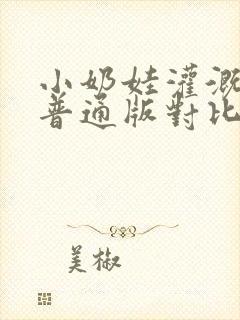 小奶娃灌溉
普通版對比
美椒